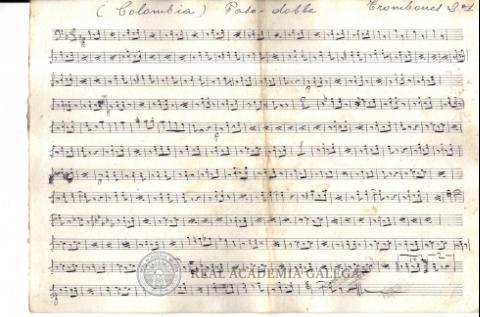 (Colombia) Paso-doble Trombones 2os
REAL ACADEMIA GALEGA